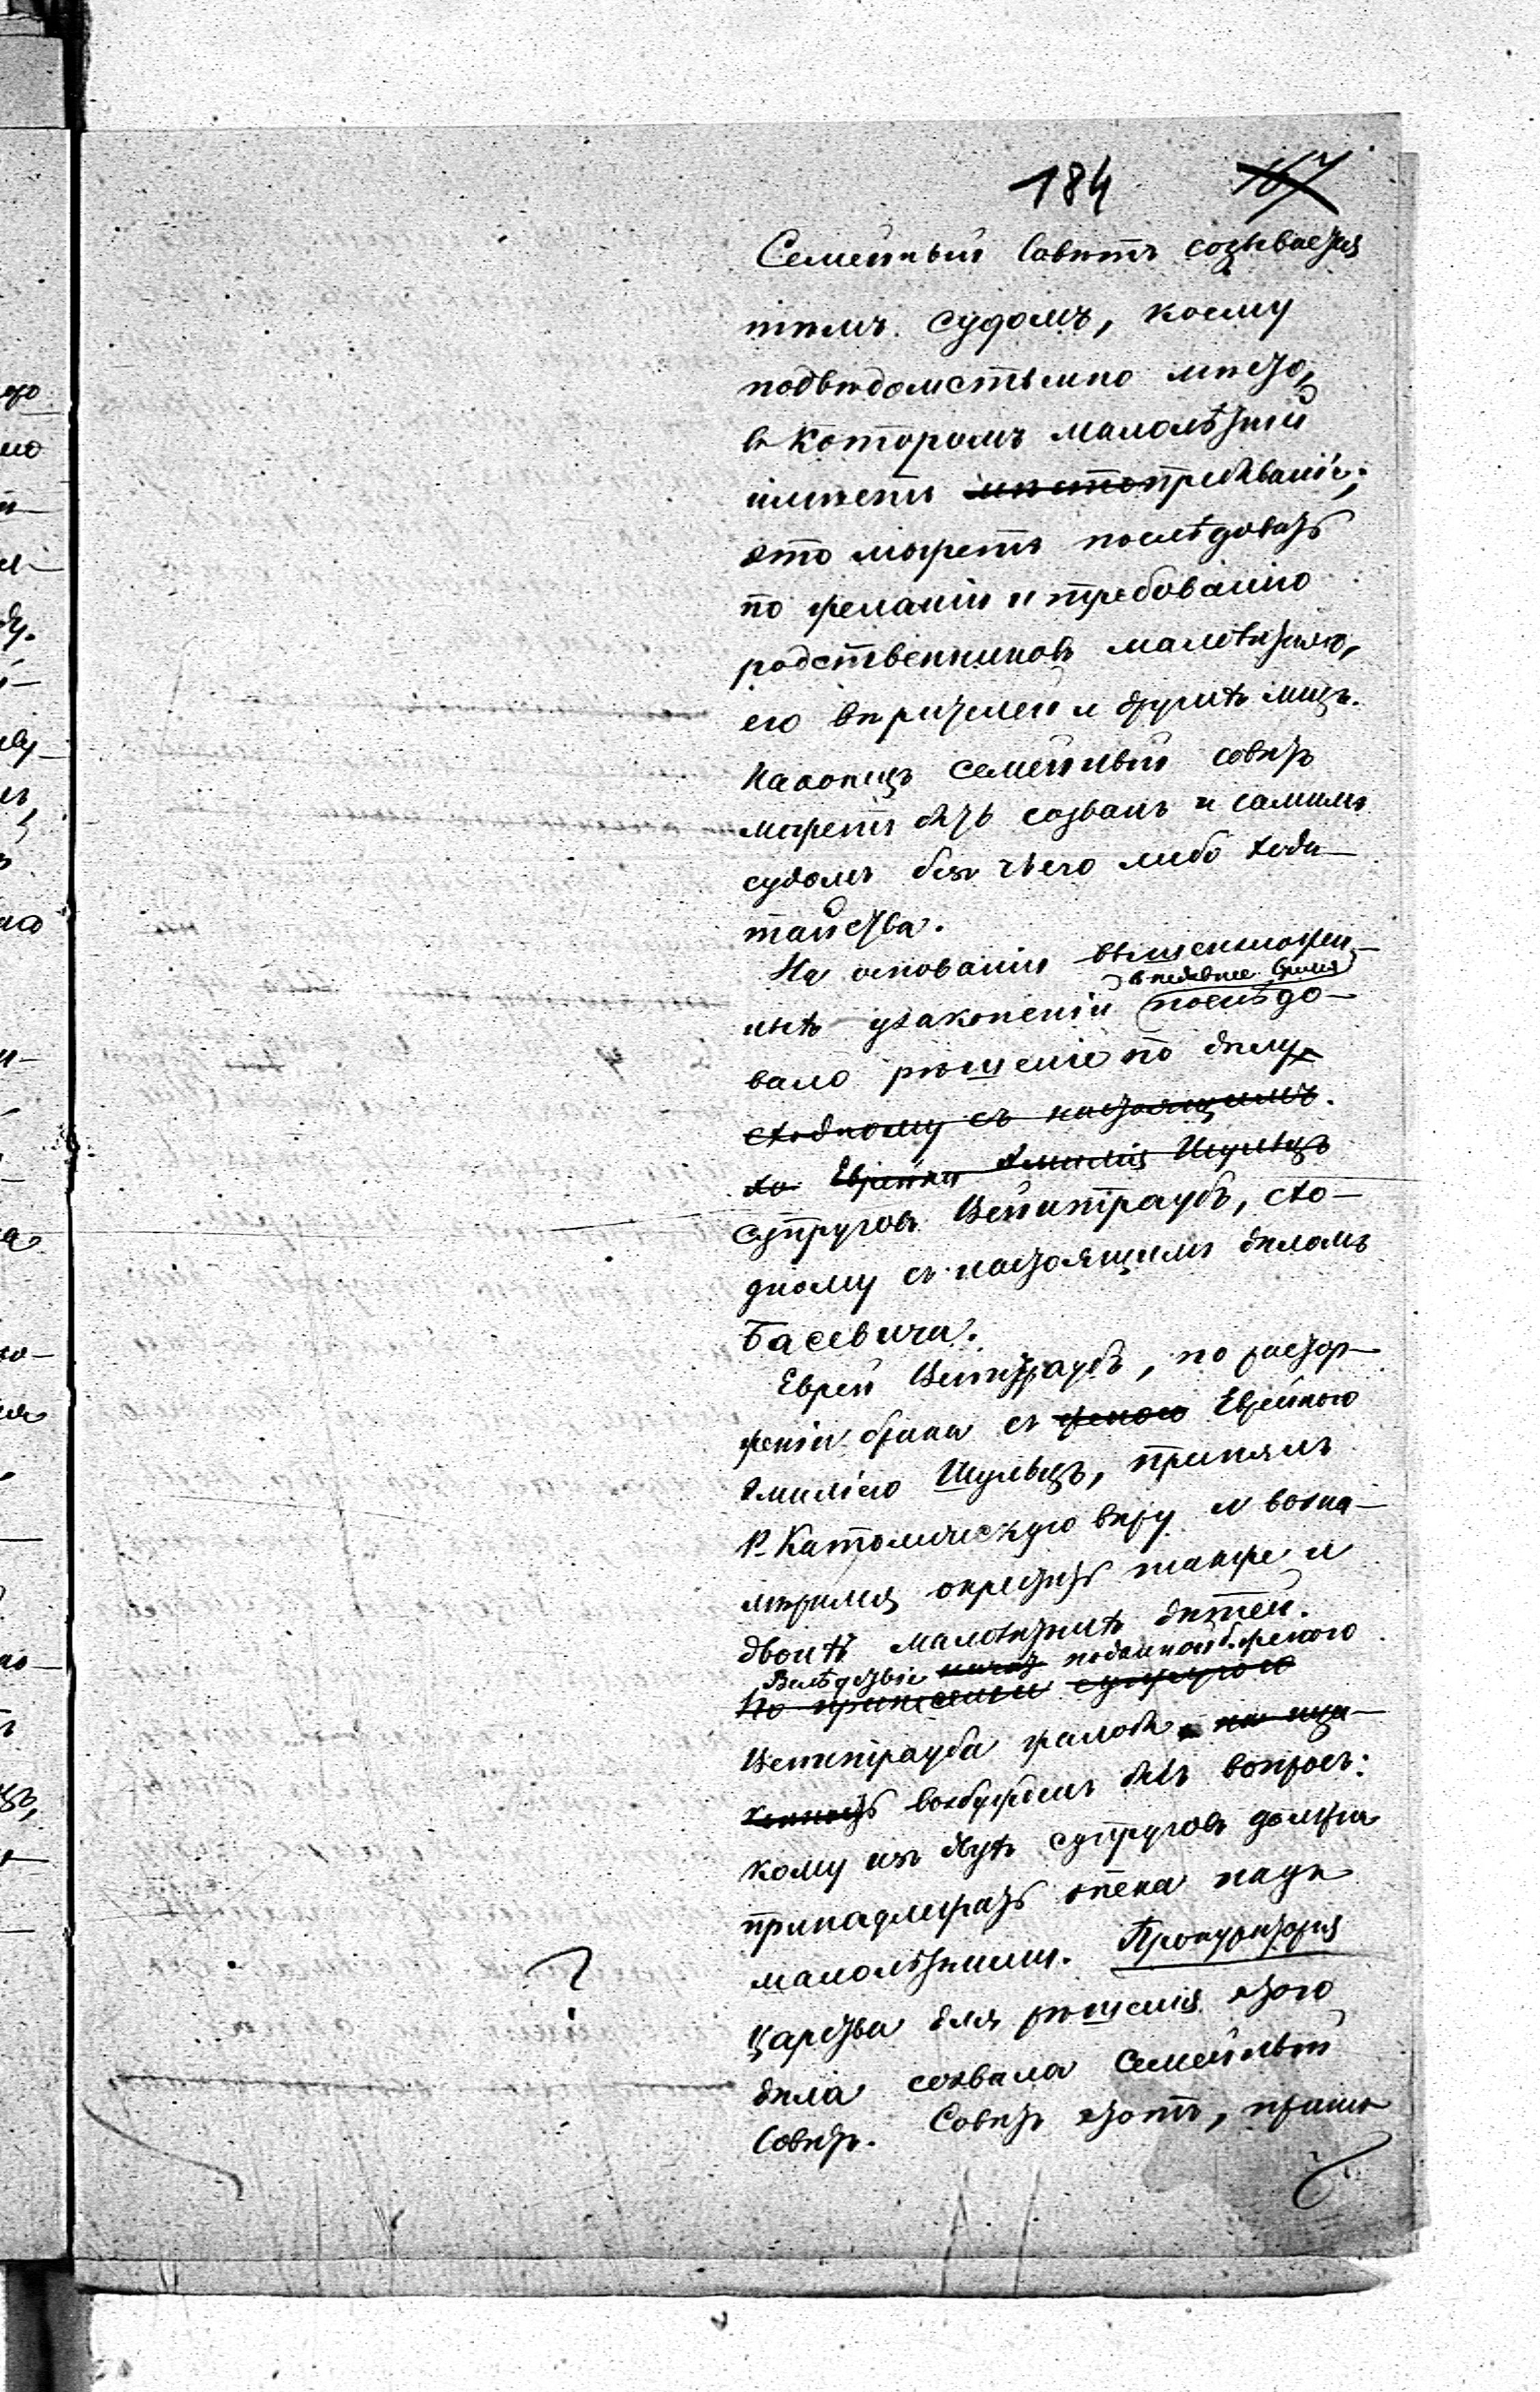 184 167
Семейный Совѣтъ созывается
тѣмъ судомъ, коему
подвѣдомственно мѣсто,
въ которомъ малолѣтній
имѣетъ мѣстопребываніе;
это можетъ послѣдовать
по желанію и требованію
родственниковъ малолѣтняго,
его вѣрителей и другихъ лицъ.
Наконецъ семейный совѣтъ
можетъ быть созванъ и самимъ
судомъ безъ чьего либо хода-
тайства.
На основаніи вышеизложен-
въ недавнее время
ныхъ узаконеній послѣдо-
вало рѣшеніе по дѣлу
сходному съ настоящимъ.
Еврейки Эмиліи Шульцъ
супруговъ Вейнтраубъ, схо-
дному съ настоящимъ дѣломъ
Басевича.
Еврей Вейнтраубъ, по растор-
женіи брака съ женою Еврейкою
Эмиліею Шульцъ, принялъ
Р. Католическую вѣру и возна-
мѣрился окрестить также и
двоихъ малолѣтнихъ дѣтей.
Вслѣдствіе поданной б. женою
По принесенной супругою
Вейнтрауба жалобы
возбужденъ былъ вопросъ:
кому изъ двухъ супруговъ должна
принадлежать опека надъ
малолѣтними. Прокураторія
?
Царства для рѣшенія этого
дѣла созвала Семейный
Совѣтъ. Совѣтъ этотъ, приня